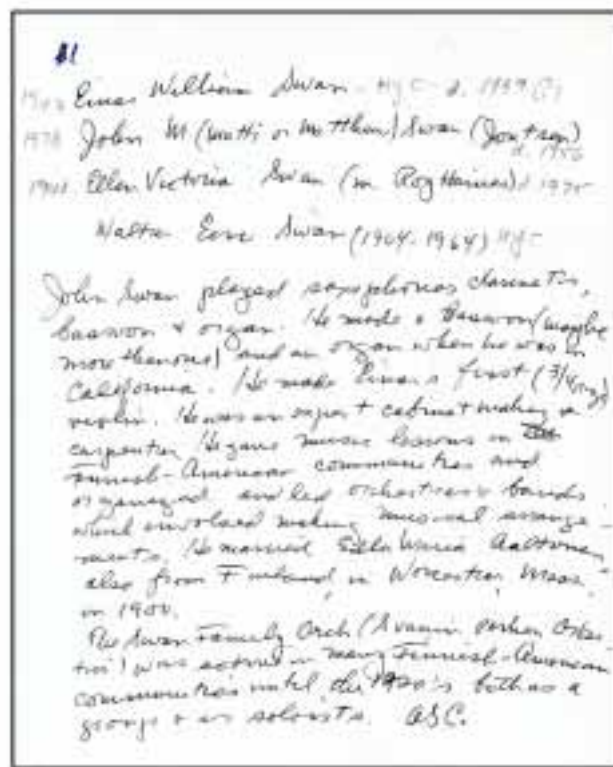 Einar William Swan - Hyc - d. 1939 (?)
John M (Matti or Matthew) Swan (Joutsen)
Ellen Victoria Swan (m Roy Haines) d 1975
Walter Eero Swan (1904-1964) Hyc
John Swan played saxophones clarinets,
bassoon & organ. He made a Bassoon (maybe
more than one) and an organ when he was in
California. He made Einar's first (3/4
violin. He was an expert cabinet making &
carpenter. He gave music lessons in
Finnish-American communities and
organized and led orchestras & bands
which involved making musical arrange-
ments. He married Maria Aaltonen,
also from Finland, in Worcester, Mass.
in 1900.
The Swan Family Orch (
was active in many Finnish-American
communities until the 1920's both as a
group & as soloists. ASC.